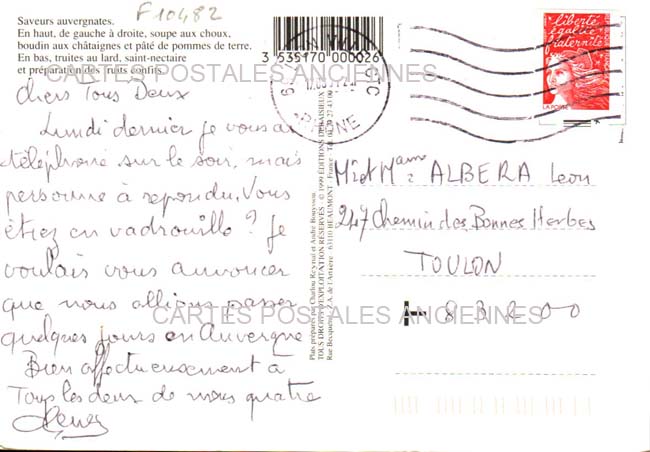 F10482
Saveurs auvergnates.
En haut, de gauche à droite, soupe aux choux,
boudin aux châtaignes et pâté de pommes de terre.
En bas, truites au lard, saint-nectaire
et préparation des fruits confits.
3 535170 000026
CARTES POSTALES ANCIENNES
Chers Tous Deux
Lundi dernier je vous ai
téléphoné sur le soir, mais
personne à répondu. Vous
étiez en vadrouille? Je
voulais vous annoncer
que nous allions passer
quelques jours en Auvergne
Bien affectueusement à
Tous les deux de nous quatre
Plats préparés par Charlou Reynal et André Bouyssou.
TOUS DROITS D'EXPLOITATION RÉSERVÉS - © 1999 ÉDITIONS DEBAISIEUX
Rue Becquerel - Z.A. de l'Artière 63110 BEAUMONT - France - Tél.
liberté
égalité
fraternité
LA POSTE
Mr et Mame ALBERA Leon
247 Chemin des Bonnes Herbes
TOULON
83200
CARTES POSTALES ANCIENNES